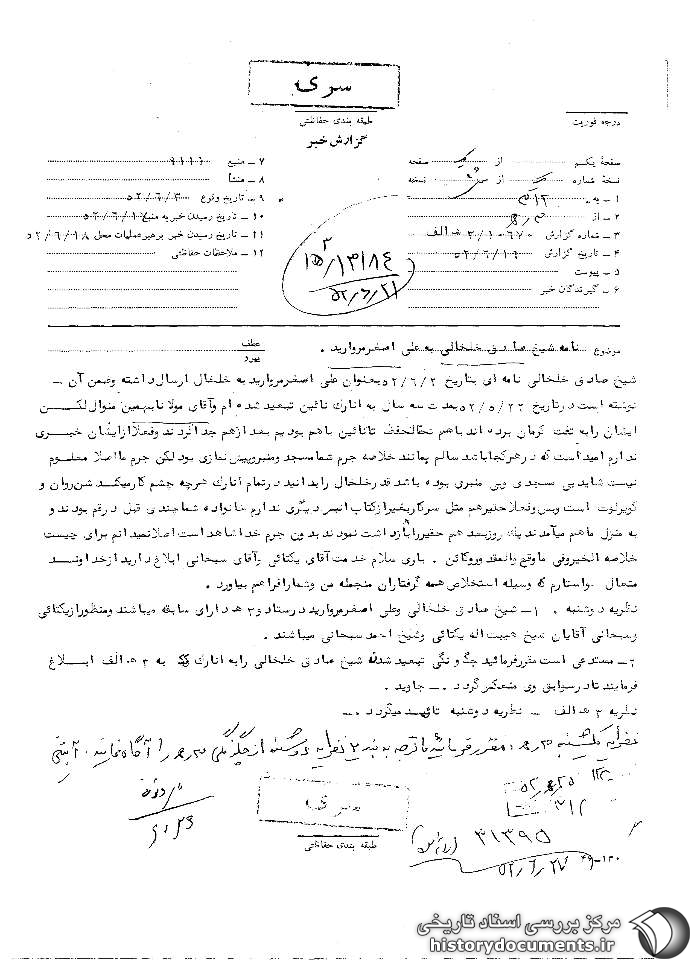 سری
طبقه بندی حفاظتی
گزارش خبر
درجه فوریت
صفحهٔ یکم از یک صفحه
نسخهٔ شماره از نسخه
۱ – به ۳۱۲
۲ – از
۳ – شماره گزارش ۲/۱۰۶۷۰ ه الف
۴ – تاریخ گزارش ۵۲/۶/۱۹
۵ – پیوست
۶ – گیرندگان خبر
۷ – منبع ۹۱۱۱
۸ – منشأ
۹ – تاریخ وقوع ۵۲/۶/۳
۱۰ – تاریخ رسیدن خبر به منبع ۵۲/۶/۱۷
۱۱ – تاریخ رسیدن خبر برهبر عملیات محل ۵۲/۶/۱۸
۱۲ – ملاحظات حفاظتی
۱۵/۱۳۱۸۴
۵۲/۶/۲۱
موضوع نامه شیخ صادق خلخالی به علی اصغر مروارید .
عطف
پیرو
شیخ صادق خلخالی نامه ای بتاریخ ۵۲/۶/۲ بعنوان علی اصغر مروارید به خلخال ارسال داشته وضمن آن –
نوشته است در تاریخ ۵۲/۵/۲۲ بمدت سه سال به انارک نائین تبعید شده ام وآقای مولانا بهمین منوال لکن
ایشان را به تفت کرمان برده اند باهم تحت الحفظ تا نائین باهم بودیم بعد از هم جدا کردند وفعلا از ایشان خبری
ندارم امید است که در هر کجا باشد سالم بمانند خلاصه جرم شما مسجد ومنبر و پیش نمازی بود لکن جرم ما اصلا معلوم
نیست شاید بی مسجدی وبی منبری بوده باشد قدر خلخال را بدانید در تمام انارک هرچه چشم کار میکند شن روان و
کویر لوت است وبس وفعلا حقیر هم مثل سرکار بغیر از کتاب انیس دیگری ندارم خانواده شما چندی قبل در قم بودند و
به منزل ما هم میآمدند یک روز بعد هم حقیر را بازداشت نمودند بدون جرم خدا شاهد است اصلا نمیدانم برای چیست
خلاصه الخیر فی ما وقع والعقد وروکائن . باری سلام خدمت آقای یکتائی وآقای سبحانی ابلاغ دارید از خداوند
متعال خواستارم که وسیله استخلاص همه گرفتاران منجمله من وشما را فراهم بیاورد .
نظریه دوشنبه . ۱– شیخ صادق خلخالی وعلی اصغر مروارید در ستاد و ۳ ه دارای سابقه میباشند ومنظور از یکتائی
وسبحانی آقایان شیخ هیبت اله یکتائی وشیخ احمد سبحانی میباشند .
۲– مستدعی است مقرر فرمائید چگونگی تبعید شدن شیخ صادق خلخالی را به انارک به ۳ ه الف ابلاغ
فرمایند تا در سوابق وی منعکس گردد . – جاوید .
نظریه ۳ ه الف – نظریه دوشنبه تائید میگردد . –
نظریه یکشنبه مقرر فرمائید با توجه به بند ۲ نظریه دوشنبه از چگونگی را آگاه نمایند . آیتی
۳۱۲
۳۱۳۹۵
۵۲/۶/۲۷
سری
طبقه بندی حفاظتی
مرکز بررسی اسناد تاریخی
historydocuments.ir